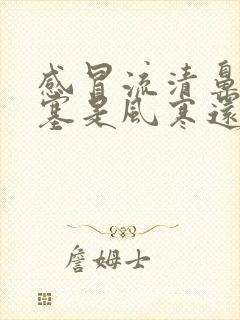 感冒流清鼻
塞是風寒還
詹姆士